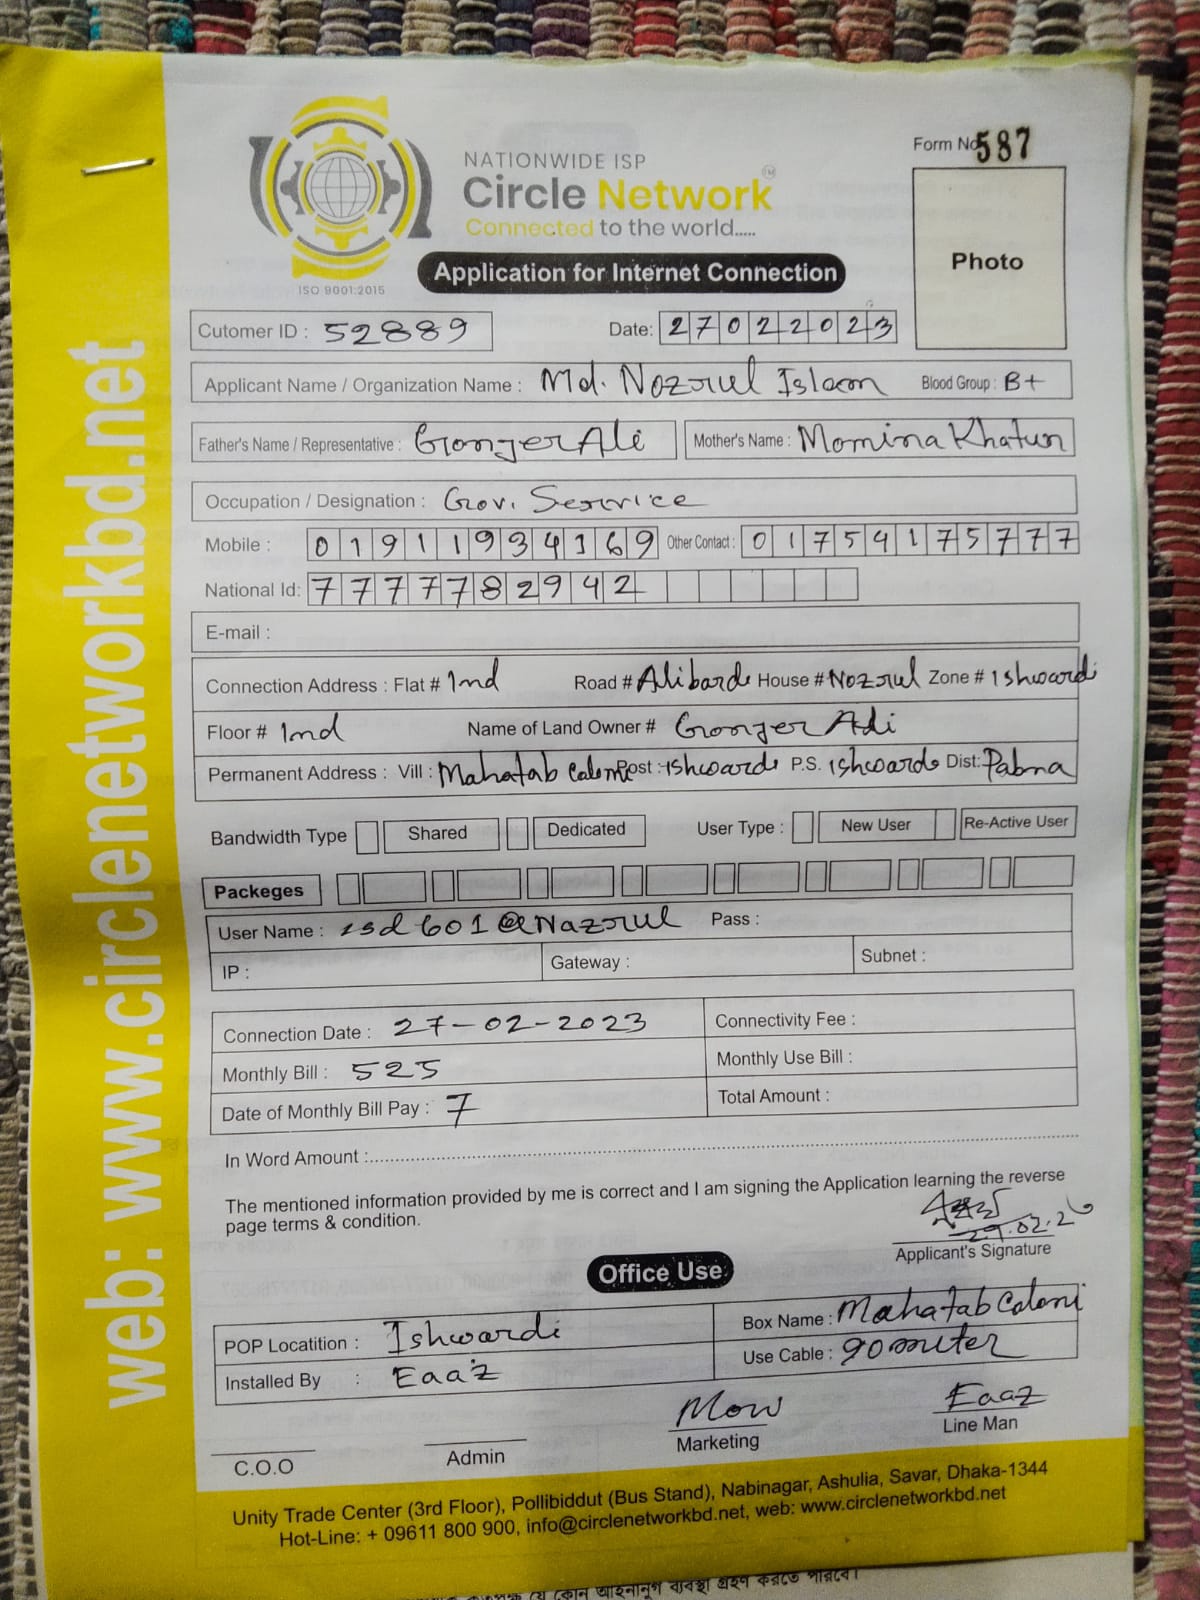 Form No 587
NATIONWIDE ISP
Circle Network
TM
Connected to the world.....
ISO 9001:2015
Application for Internet Connection
Photo
Cutomer ID : 52889 Date: 27022023
Applicant Name / Organization Name : Md. Nozrul Islam Blood Group : B+
Father's Name / Representative : Gronjer Ali Mother's Name : Momina Khatun
Occupation / Designation : Gov. Service
Mobile : 01911934169 Other Contact : 01754175777
National Id: 7777782942
E-mail :
Connection Address : Flat # 1nd Road # Alibarde House # Nozrul Zone # Ishwardi
Floor # 1nd Name of Land Owner # Gronjer Ali
Permanent Address : Vill : Mahatab Coloni Post : Ishwardi P.S. Ishwardi Dist: Pabna
Bandwidth Type Shared Dedicated User Type : New User Re-Active User
Packeges
User Name : isd601@Nazrul Pass :
IP : Gateway : Subnet :
Connection Date : 27-02-2023 Connectivity Fee :
Monthly Bill : 525 Monthly Use Bill :
Date of Monthly Bill Pay : 7 Total Amount :
In Word Amount :
The mentioned information provided by me is correct and I am signing the Application learning the reverse
page terms & condition.
Applicant's Signature
Office Use
POP Locatition : Ishwardi Box Name : Mahatab Coloni
Installed By : Eaaz Use Cable : 90 meter
Mow Eaaz
C.O.O Admin Marketing Line Man
Unity Trade Center (3rd Floor), Pollibiddut (Bus Stand), Nabinagar, Ashulia, Savar, Dhaka-1344
Hot-Line: + 09611 800 900, info@circlenetworkbd.net, web: www.circlenetworkbd.net
web: www.circlenetworkbd.net
যে কোন আইনানুগ ব্যবস্থা গ্রহণ করতে পারবে।